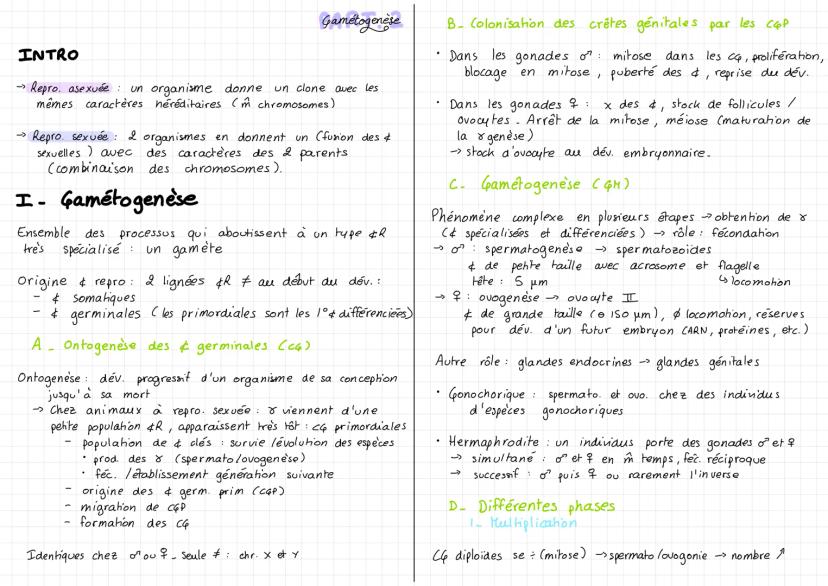 PART. 2
Gamétogenèse
INTRO
→ Repro. asexuée : un organisme donne un clone avec les
mêmes caractères héréditaires (m̂ chromosomes)
→ Repro. sexuée : 2 organismes en donnent un (fusion des ¢
sexuelles) avec des caractères des 2 parents
(combinaison des chromosomes).
I - Gamétogenèse
Ensemble des processus qui aboutissent à un type ¢R
très spécialisé : un gamète
Origine ¢ repro : 2 lignées ¢R ≠ au début du dév. :
- ¢ somatiques
- ¢ germinales (les primordiales sont les 1° ¢ différenciées)
A - Ontogenèse des ¢ germinales (CG)
Ontogenèse : dév. progressif d'un organisme de sa conception
jusqu'à sa mort
→ Chez animaux à repro. sexuée : γ viennent d'une
petite population ¢R, apparaissent très tôt : CG primordiales
- population de ¢ clés : survie/évolution des espèces
• prod. des γ (spermato/ovogenèse)
• féc. /établissement génération suivante
- origine des ¢ germ. prim (CGP)
- migration de CGP
- formation des CG
Identiques chez ♂ ou ♀ - seule ≠ : chr. X et Y
B - Colonisation des crêtes génitales par les CGP
• Dans les gonades ♂ : mitose dans les CG, prolifération,
blocage en mitose, puberté des ¢, reprise du dév.
• Dans les gonades ♀ : x des ¢, stock de follicules /
ovocytes - Arrêt de la mitose, méiose (maturation de
la γgenèse)
→ stock d'ovocyte au dév. embryonnaire.
C - Gamétogenèse (GM)
Phénomène complexe en plusieurs étapes → obtention de γ
(¢ spécialisées et différenciées) → rôle : fécondation
→ ♂ : spermatogenèse → spermatozoides
¢ de petite taille avec acrosome et flagelle
tête : 5 μm ↳ locomotion
→ ♀ : ovogenèse → ovocyte II
¢ de grande taille (⊖ 150 μm), ∅ locomotion, réserves
pour dév. d'un futur embryon (ARN, protéines, etc.)
Autre rôle : glandes endocrines → glandes génitales
• Gonochorique : spermato. et ovo. chez des individus
d'espèces gonochoriques
• Hermaphrodite : un individus porte des gonades ♂ et ♀
→ simultané : ♂ et ♀ en m̂ temps, féc. réciproque
→ successif : ♂ puis ♀ ou rarement l'inverse
D - Différentes phases
1 - Multiplication
CG diploïdes se ÷ (mitose) → spermato/ovogonie → nombre ↗